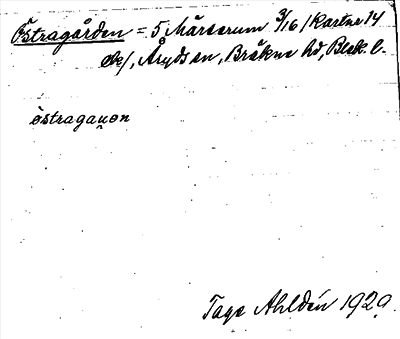 Östragården = 5 Mårserum 3/16 /kartnr 14
de/, Åryds sn, Bräkne hd, Blek. l.
östragau̯on
Tage Ahldén 1929.